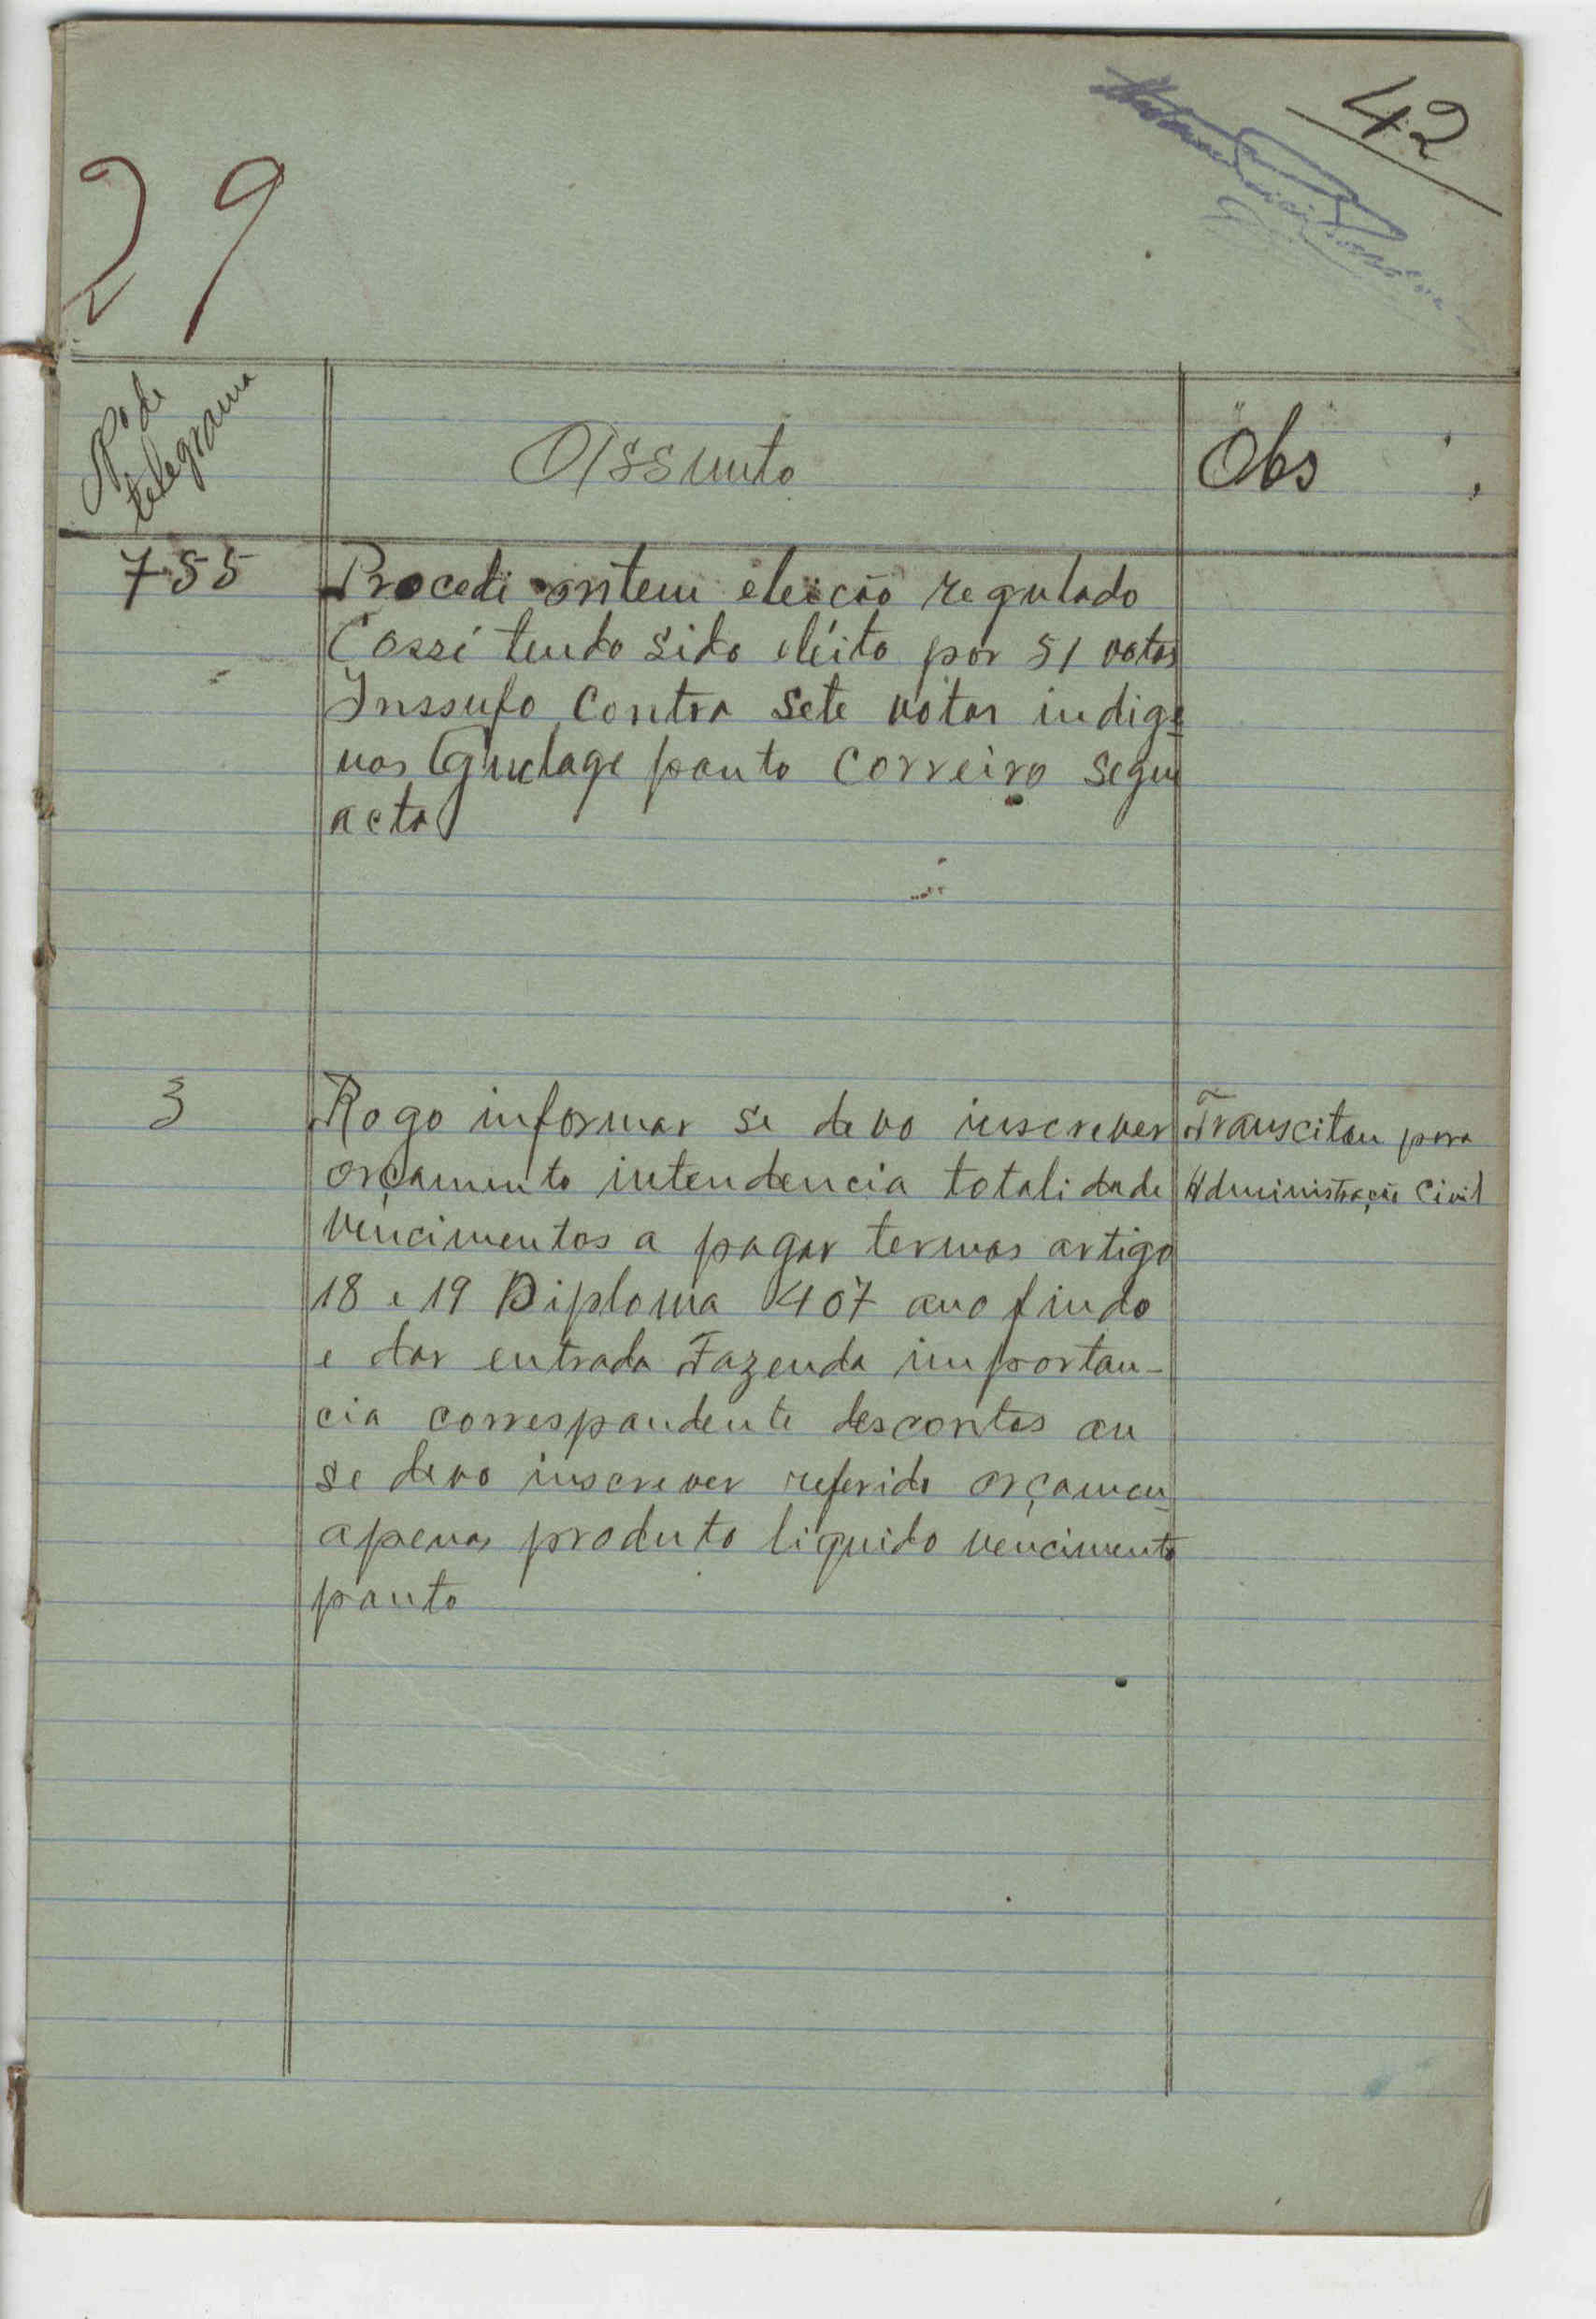 42
29
Nº de
telegrama
Assunto
Obs
755
Procedi ontem eleição regulado
Cossé tendo sido eléito por 51 votos
Inssufo contra sete votos indige
nas Gudage ponto Correiro segue
acta
3
Rogo informar se devo inscrever
orçamento intendencia totalidade
vencimentos a pagar termos artigo
18 e 19 Diploma 407 ano findo
e dar entrada Fazenda importan-
cia correspondente descontos ou
se devo inscrever referido orçamen
apenas produto liquido vencimento
ponto
Transcitou para
Administração Civil